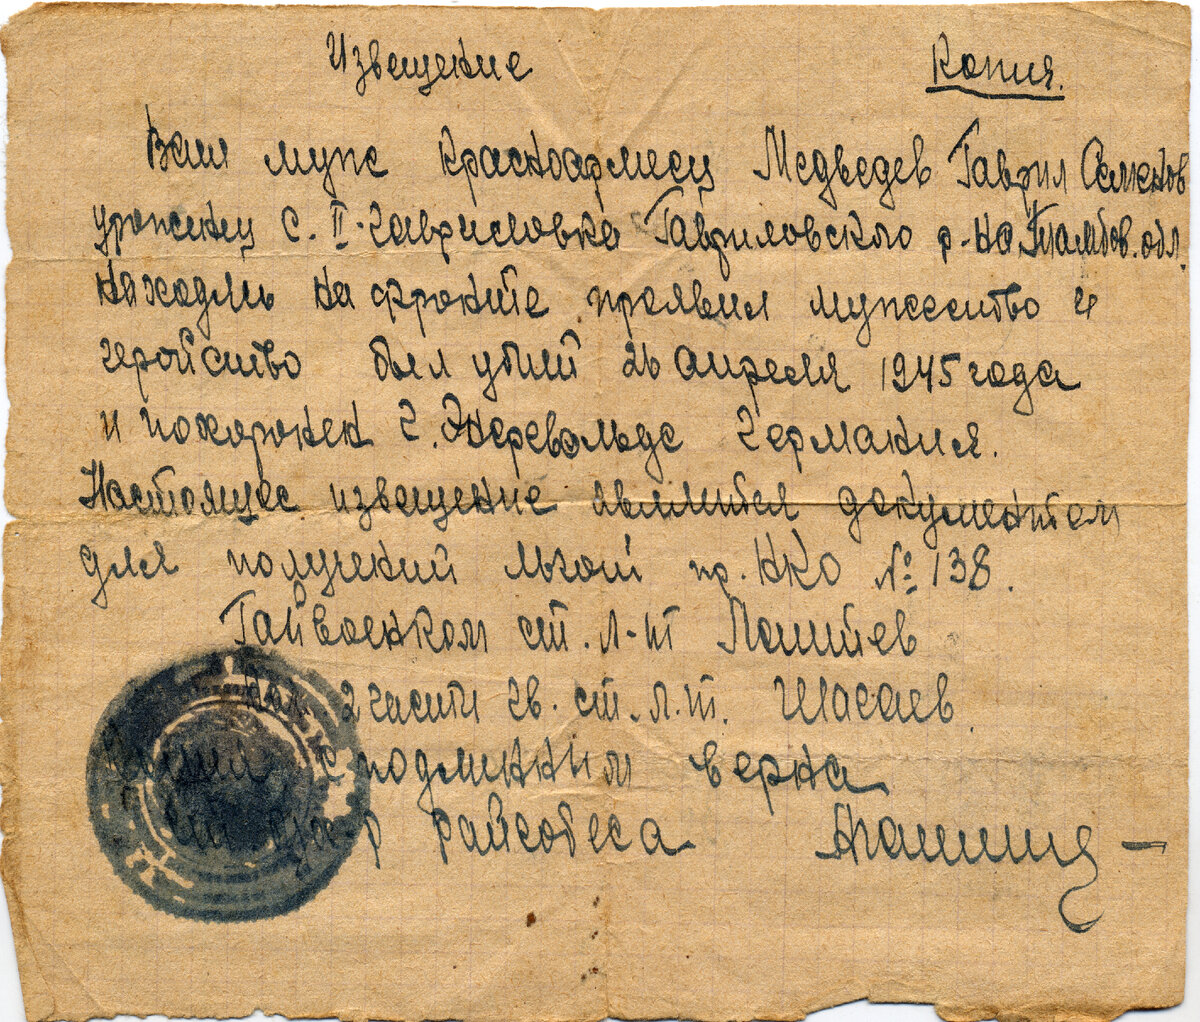 Извещение Копия.
Ваш муж красноармеец Медведев Гаврил Семенов
уроженец с. II-Гавриловка Гавриловского р-на Тамбов. обл.
находясь на фронте проявил мужество и
геройство был убит 26 апреля 1945 года
и похоронен г. Эберевольде Германия.
Настоящее извещение является документом
для получения льгот пр. НКО № 138.
Райвоенком ст. л-т Лаптев
2 части гв. ст. л.т. Шасаев.
с подлинным верна
райсобеса